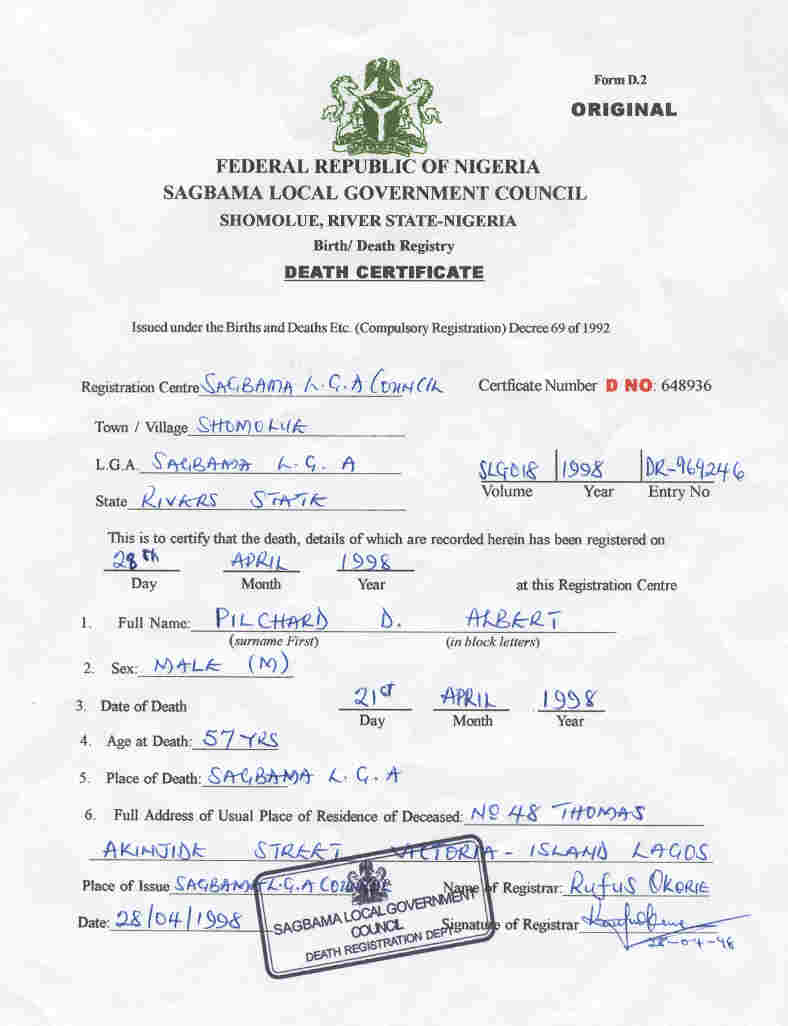 Form D.2
ORIGINAL
FEDERAL REPUBLIC OF NIGERIA
SAGBAMA LOCAL GOVERNMENT COUNCIL
SHOMOLUE, RIVER STATE-NIGERIA
Birth/ Death Registry
DEATH CERTIFICATE
Issued under the Births and Deaths Etc. (Compulsory Registration) Decree 69 of 1992
Registration Centre SAGBAMA L.G.A COUNCIL Certficate Number D NO: 648936
Town / Village SHOMOLUE
L.G.A. SAGBAMA L.G.A SLG018 1998 DR-969246
Volume Year Entry No
State RIVERS STATE
This is to certify that the death, details of which are recorded herein has been registered on
28th APRIL 1998
Day Month Year at this Registration Centre
1. Full Name: PILCHARD D. ALBERT
(surname First) (in block letters)
2. Sex: MALE (M)
3. Date of Death 21st APRIL 1998
Day Month Year
4. Age at Death: 57 YRS
5. Place of Death: SAGBAMA L.G.A
6. Full Address of Usual Place of Residence of Deceased: No 48 THOMAS
AKINJIDE STREET VICTORIA - ISLAND LAGOS
Place of Issue SAGBAMA L.G.A COUNCIL Name of Registrar: RUFUS OKORIE
Date: 28/04/1998 Signature of Registrar
28-04-98
SAGBAMA LOCAL GOVERNMENT
COUNCIL
DEATH REGISTRATION DEPT